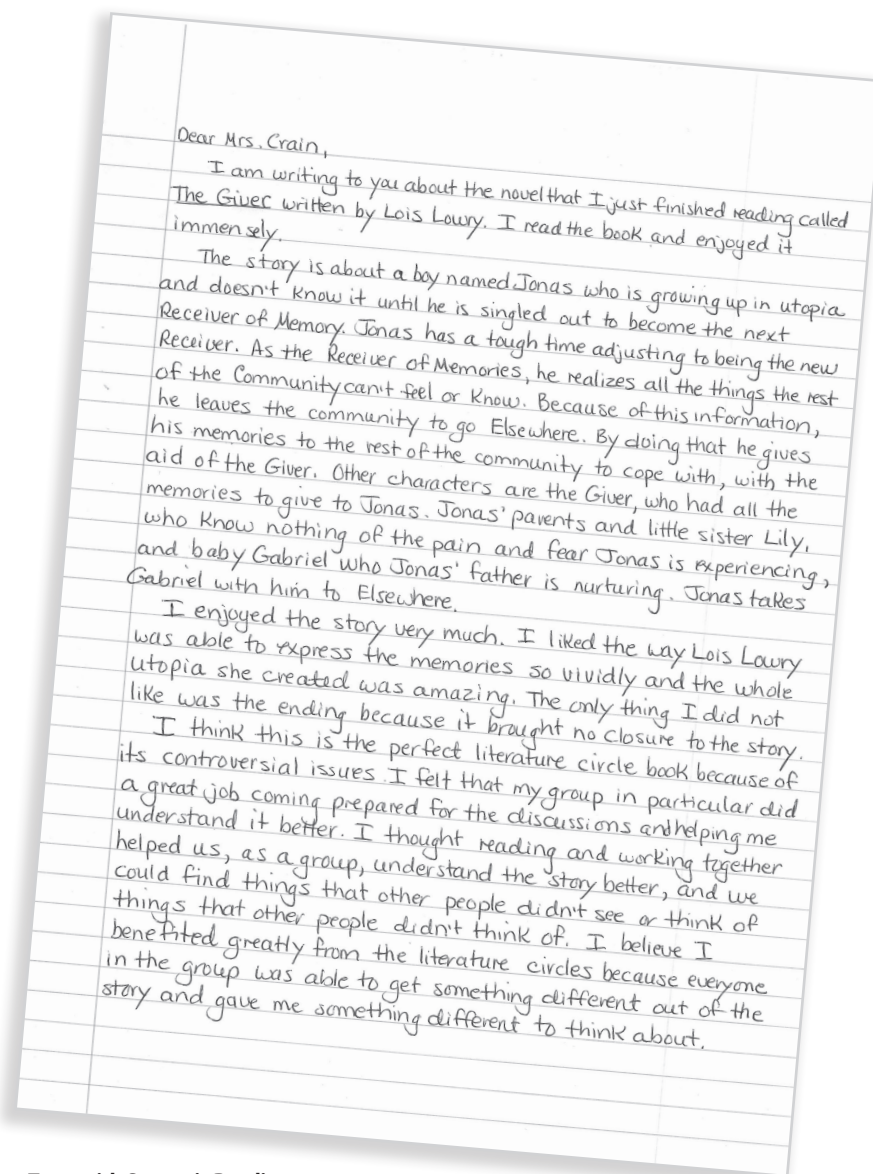 Dear Mrs. Crain,
I am writing to you about the novel that I just finished reading called
The Giver written by Lois Lowry. I read the book and enjoyed it
immensely.
The story is about a boy named Jonas who is growing up in utopia
and doesn't know it until he is singled out to become the next
Receiver of Memory. Jonas has a tough time adjusting to being the new
Receiver. As the Receiver of Memories, he realizes all the things the rest
of the Community can't feel or know. Because of this information,
he leaves the community to go Elsewhere. By doing that he gives
his memories to the rest of the community to cope with, with the
aid of the Giver. Other characters are the Giver, who had all the
memories to give to Jonas. Jonas' parents and little sister Lily,
who know nothing of the pain and fear Jonas is experiencing,
and baby Gabriel who Jonas' father is nurturing. Jonas takes
Gabriel with him to Elsewhere.
I enjoyed the story very much. I liked the way Lois Lowry
was able to express the memories so vividly and the whole
utopia she created was amazing. The only thing I did not
like was the ending because it brought no closure to the story.
I think this is the perfect literature circle book because of
its controversial issues. I felt that my group in particular did
a great job coming prepared for the discussions and helping me
understand it better. I thought reading and working together
helped us, as a group, understand the story better, and we
could find things that other people didn't see or think of
things that other people didn't think of. I believe I
benefited greatly from the literature circles because everyone
in the group was able to get something different out of the
story and gave me something different to think about.